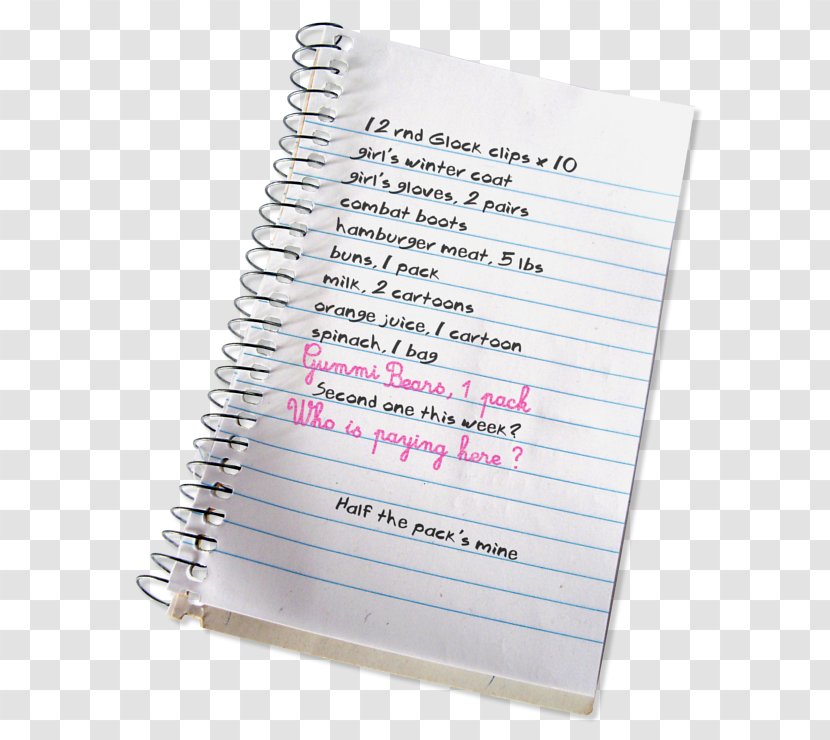 12 rnd Glock clips x 10
girl's winter coat
girl's gloves, 2 pairs
combat boots
hamburger meat, 5 lbs
buns, 1 pack
milk, 2 cartoons
orange juice, 1 cartoon
spinach, 1 bag
Gummi Bears, 1 pack
Second one this week?
Who is paying here ?
Half the pack's mine